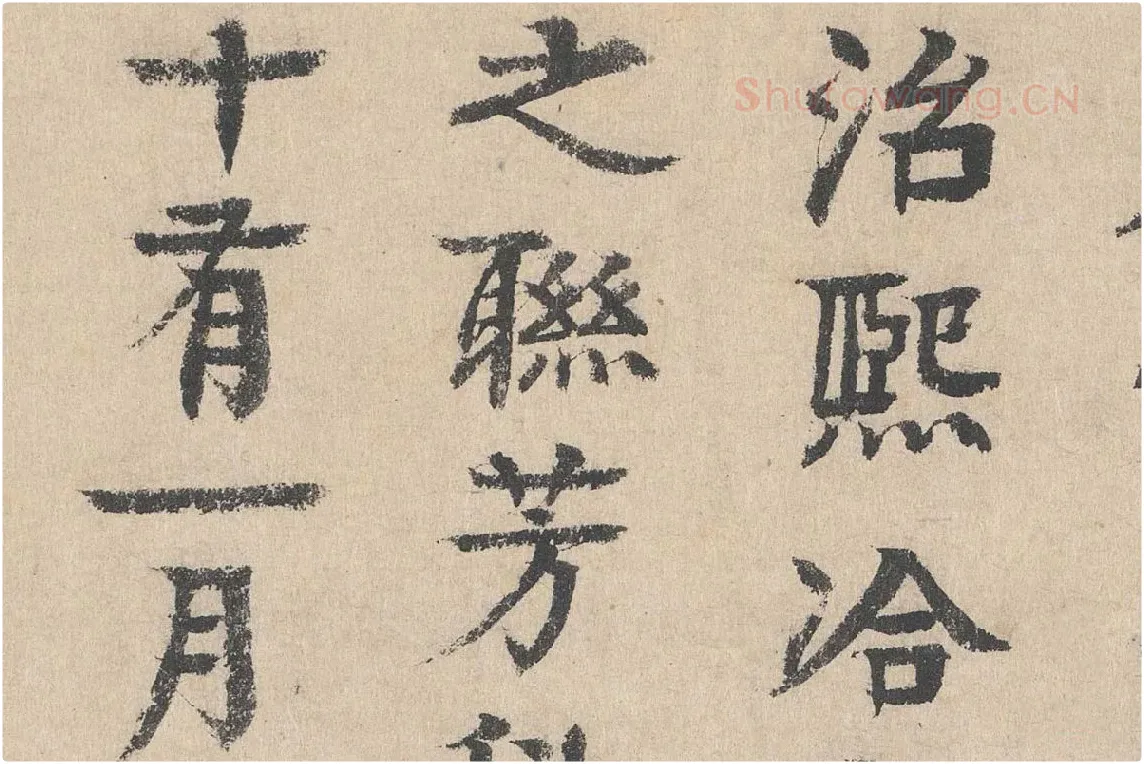 治熙洽
之聯芳
十有一月
Shufawang.CN